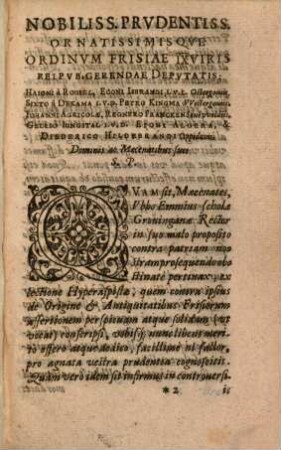 NOBILISS. PRVDENTISS.
ORNATISSIMISQVE
ORDINVM FRISIAE IXVIRIS
REIPVB. GERENDAE DEPVTATIS;
HAIONI à ROUSEL, EGONI I.V.L. Ostergois,
SIXTO à DEKAMA I.V.D. PETRO KINGMA Westergois.
IOHANNI AGRICOLÆ, REGNERO FRANCKEN
GELLIO I.V.D. EPONI ALGERA, &
DIEDERICO HILDEBRANDI Oppidanis,
Dominis ac Mœcenatibus suis.
S. P.
QVAM sit, Mæcenates,
Vbbo Emmius scholæ
Groninganæ Rector
in suo malo proposito
contra patriam nostram
prosequendo obstinatè
pertinax, ex
lectione Hyperaspistæ, quem contra ipsius
de Origine & Antiquitatibus Frisiorum
assertionem persolitam atque solidam (ut
vocat) conscripsi, vobisq; nuncubi merito
offero atque dedico, facillimè ni fallor,
pro agnata vestra prudentia cognoscetis.
Quàm verò idem sit infirmus in controversi-
*2 is